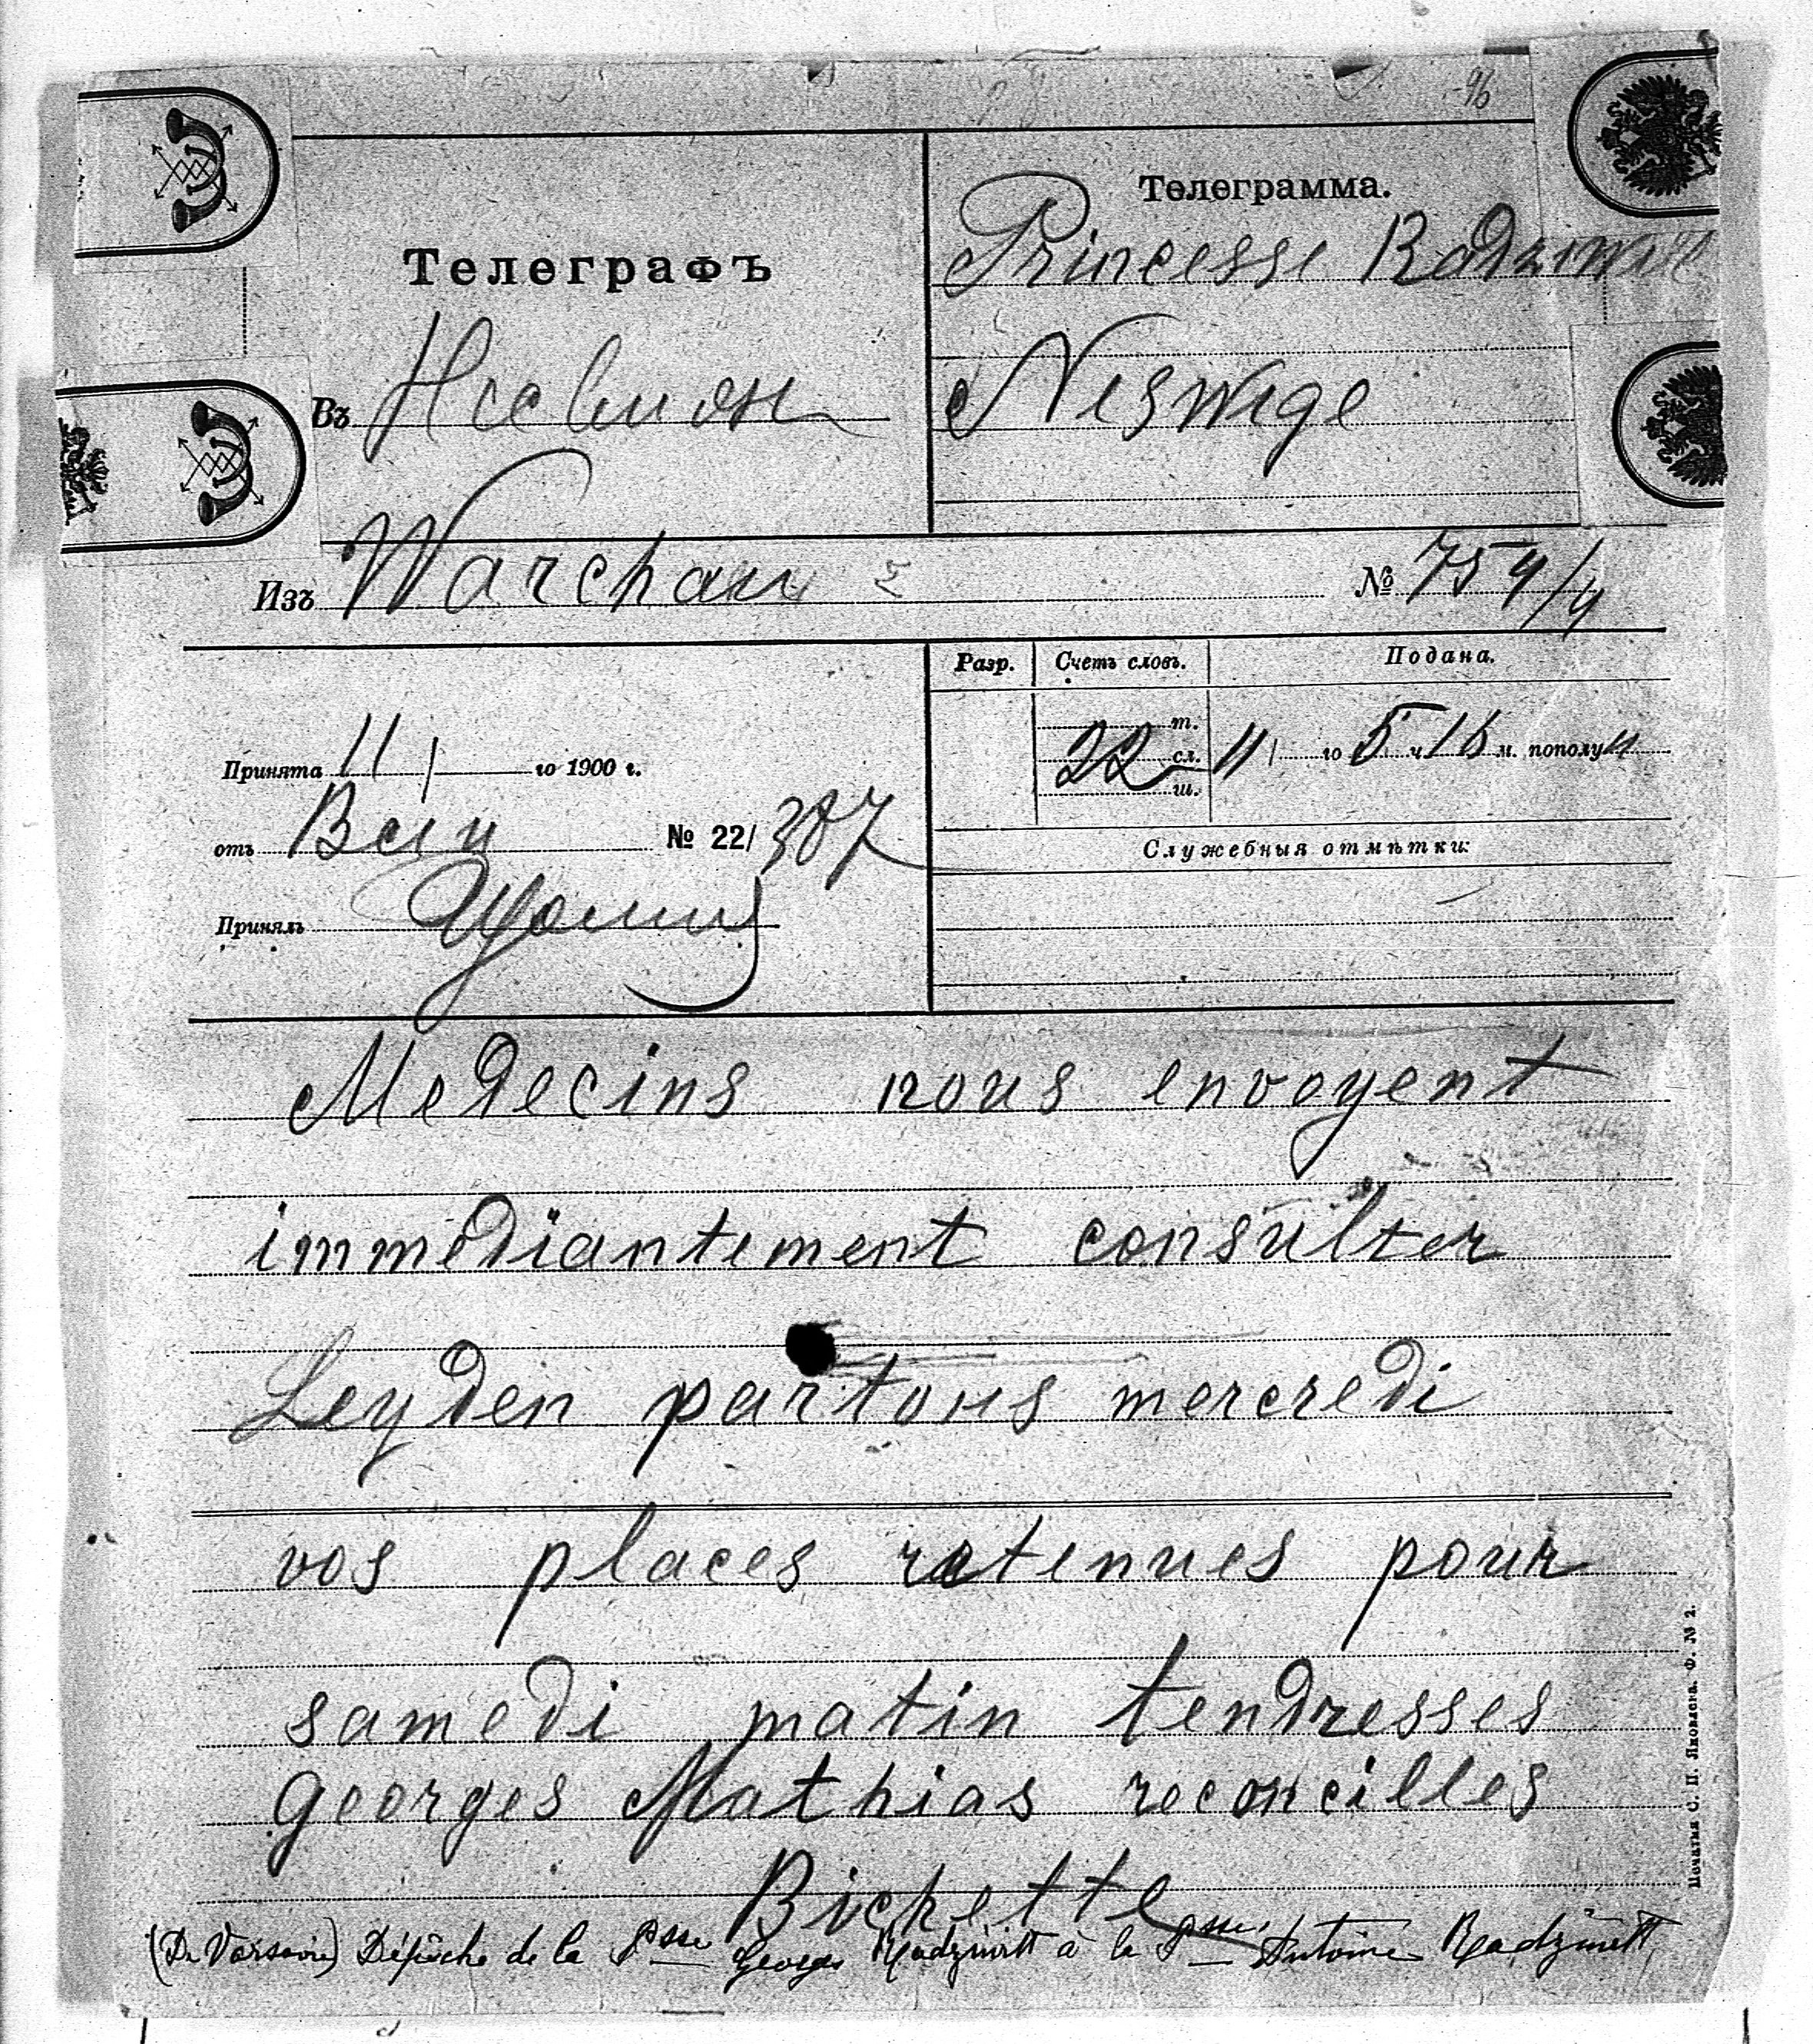 96
Телеграфъ
Телеграмма.
Princesse Radziwill
Въ Несвиж
Neswige
Изъ Warchau
№ 754/4
Разр. Счетъ словъ. Подана.
т.
22 сл. 11 го 5 ч 15 м. пополун
ш.
Принята 11/ го 1900 г.
отъ № 22/387
Служебныя отмѣтки:
Принялъ
Medecins nous envoyent
immediantement consulter
Leyden partons mercredi
vos places retenues pour
samedi matin tendresses
georges Mathias reconcilles
Bichette
(De Varsovie) Dépêche de la Psse Georges Radziwill à la Psse Antoine Radziwill
Печатня С. П. Яковлева. Ф. № 2.